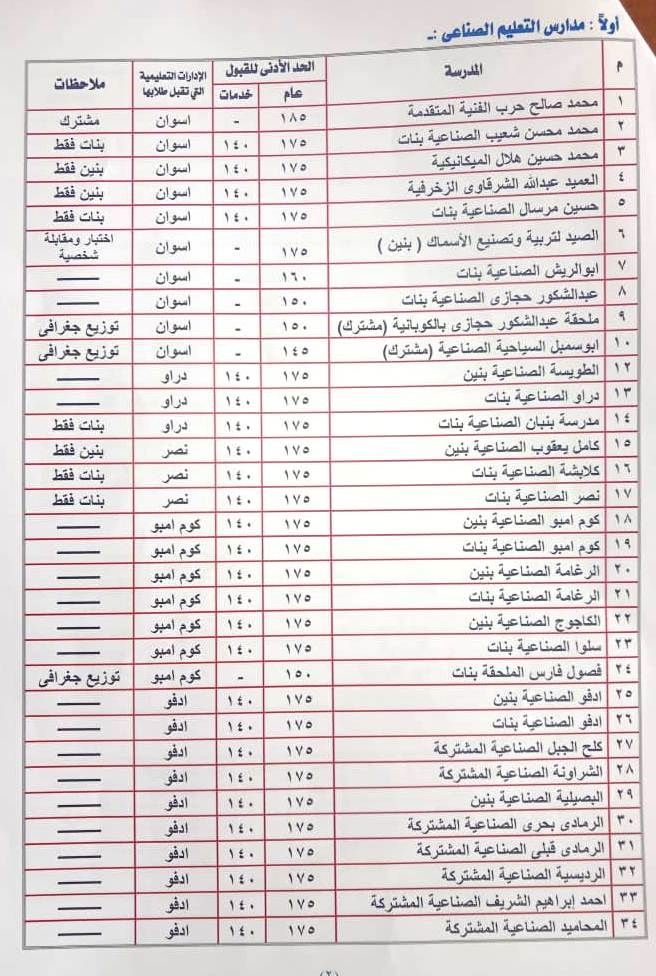 أولاً : مدارس التعليم الصناعى :ـ
م المدرسة الحد الأدنى للقبول الإدارات التعليمية التي تقبل طلابها ملاحظات
عام خدمات
١ محمد صالح حرب الفنية المتقدمة ١٨٥ - اسوان مشترك
٢ محمد محسن شعيب الصناعية بنات ١٧٥ ١٤٠ اسوان بنات فقط
٣ محمد حسين هلال الميكانيكية ١٧٥ ١٤٠ اسوان بنين فقط
٤ العميد عبدالله الشرقاوى الزخرفية ١٧٥ ١٤٠ اسوان بنين فقط
٥ حسين مرسال الصناعية بنات ١٧٥ ١٤٠ اسوان بنات فقط
٦ الصيد لتربية وتصنيع الأسماك ( بنين ) ١٧٥ - اسوان اختبار ومقابلة شخصية
٧ ابوالريش الصناعية بنات ١٦٠ - اسوان ——
٨ عبدالشكور حجازى الصناعية بنات ١٥٠ - اسوان ——
٩ ملحقة عبدالشكور حجازى بالكوبانية (مشترك) ١٥٠ - اسوان توزيع جغرافى
١٠ ابوسمبل السياحية الصناعية (مشترك) ١٤٥ - اسوان توزيع جغرافى
١٢ الطويسة الصناعية بنين ١٧٥ ١٤٠ دراو ——
١٣ دراو الصناعية بنات ١٧٥ ١٤٠ دراو ——
١٤ مدرسة بنبان الصناعية بنات ١٧٥ ١٤٠ دراو بنات فقط
١٥ كامل يعقوب الصناعية بنين ١٧٥ ١٤٠ نصر بنين فقط
١٦ كلابشة الصناعية بنات ١٧٥ ١٤٠ نصر بنات فقط
١٧ نصر الصناعية بنات ١٧٥ ١٤٠ نصر بنات فقط
١٨ كوم امبو الصناعية بنين ١٧٥ ١٤٠ كوم امبو ——
١٩ كوم امبو الصناعية بنات ١٧٥ ١٤٠ كوم امبو ——
٢٠ الرغامة الصناعية بنين ١٧٥ ١٤٠ كوم امبو ——
٢١ الرغامة الصناعية بنات ١٧٥ ١٤٠ كوم امبو ——
٢٢ الكاجوج الصناعية بنين ١٧٥ ١٤٠ كوم امبو ——
٢٣ سلوا الصناعية بنات ١٧٥ ١٤٠ كوم امبو ——
٢٤ فصول فارس الملحقة بنات ١٥٠ - كوم امبو توزيع جغرافى
٢٥ ادفو الصناعية بنين ١٧٥ ١٤٠ ادفو ——
٢٦ ادفو الصناعية بنات ١٧٥ ١٤٠ ادفو ——
٢٧ كلح الجبل الصناعية المشتركة ١٧٥ ١٤٠ ادفو ——
٢٨ الشراونة الصناعية المشتركة ١٧٥ ١٤٠ ادفو ——
٢٩ البصيلية الصناعية بنين ١٧٥ ١٤٠ ادفو ——
٣٠ الرمادى بحرى الصناعية المشتركة ١٧٥ ١٤٠ ادفو ——
٣١ الرمادى قبلى الصناعية المشتركة ١٧٥ ١٤٠ ادفو ——
٣٢ الرديسية الصناعية المشتركة ١٧٥ ١٤٠ ادفو ——
٣٣ احمد إبراهيم الشريف الصناعية المشتركة ١٧٥ ١٤٠ ادفو ——
٣٤ المحاميد الصناعية المشتركة ١٧٥ ١٤٠ ادفو ——
(٢)